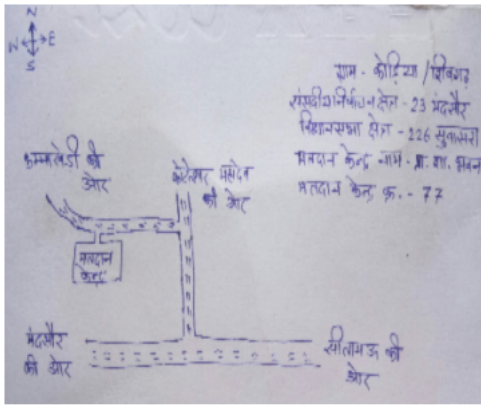 N
W E
S
ग्राम - कोड़िया / शिवगढ़
संसदीय निर्वाचन क्षेत्र - 23 मंदसौर
विधानसभा क्षेत्र - 226 सुवासरा
मतदान केन्द्र नाम - प्रा. शा. भवन
मतदान केन्द्र क्र. - 77
की
ओर
कोटेश्वर महादेव
की ओर
मतदान
केन्द्र
मंदसौर
की ओर
सीतामऊ की
ओर